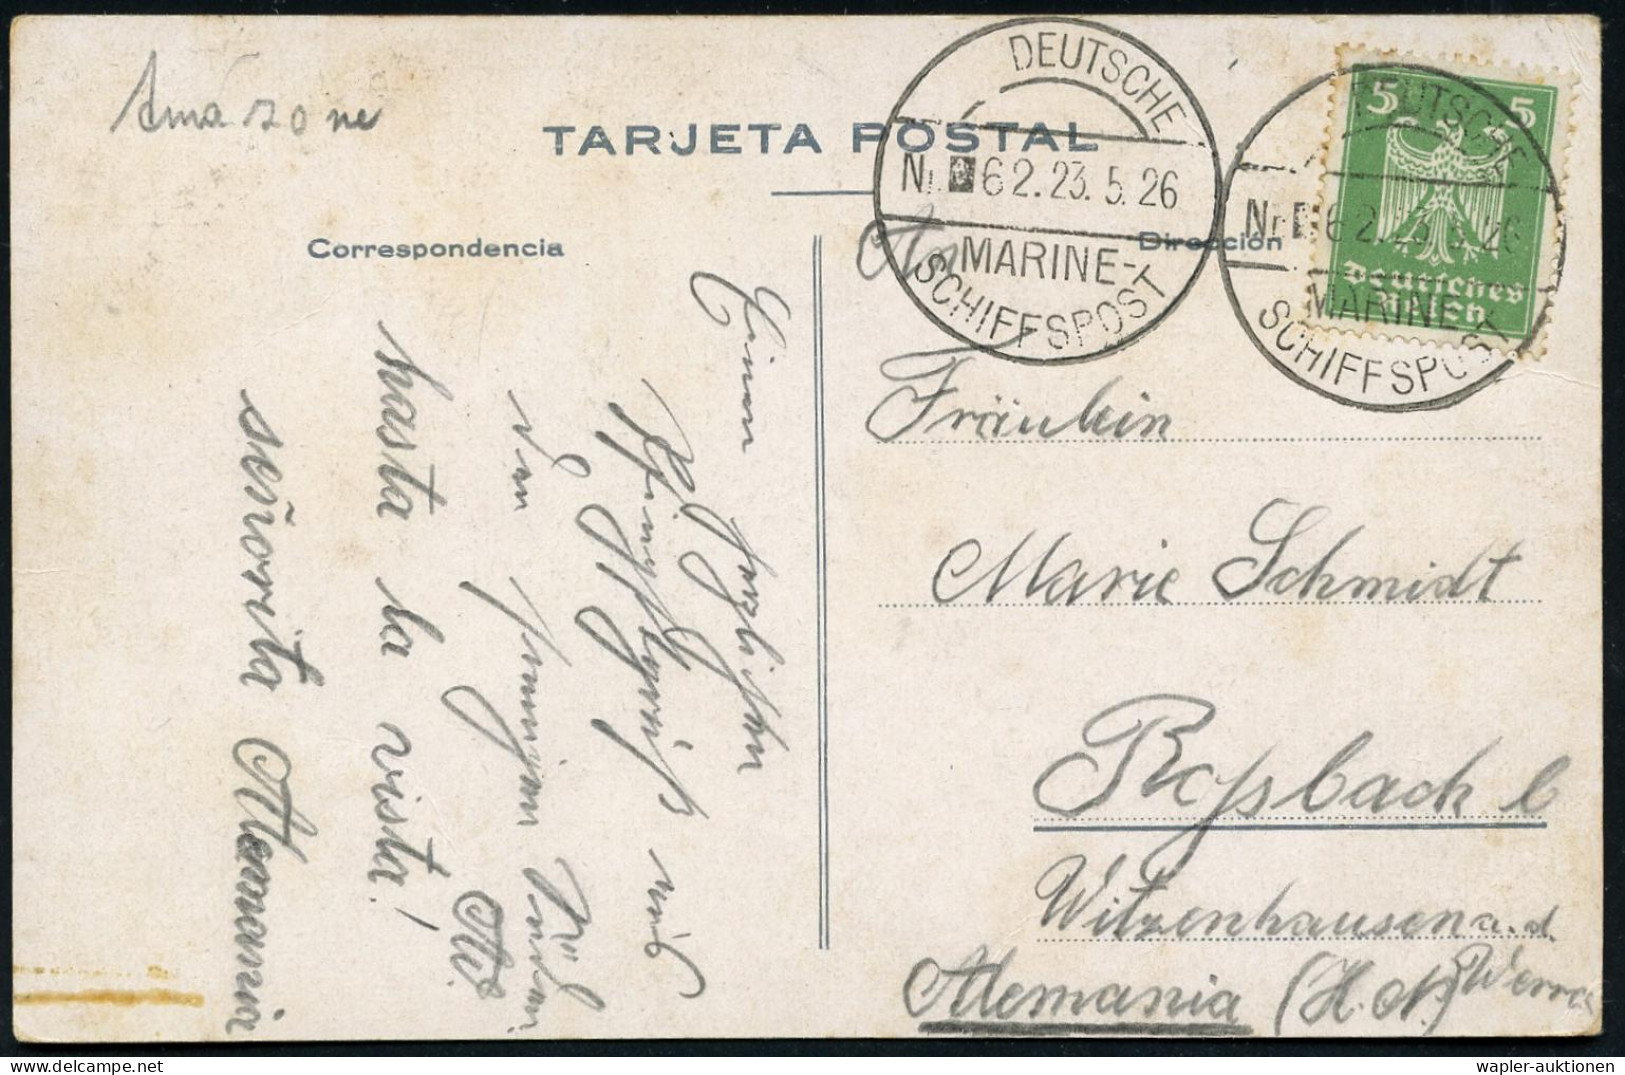 Amazone
TARJETA POSTAL
Correspondencia
Dirección
DEUTSCHE
Nr. 62. 23. 5. 26
MARINE-
SCHIFFSPOST
DEUTSCHE
Nr. 62. 23. 5. 26
MARINE-
SCHIFFSPOST
5 5
Deutsches
Reich
Einen herzlichen
Pfingstgruß aus
dem sonnigen Süden
hasta la vista!
señorita Alemania
An
Fräulein
Marie Schmidt
Rossbach b
Witzenhausen a. d.
Werra
Alemania (H. N.)
wapler-auktionen